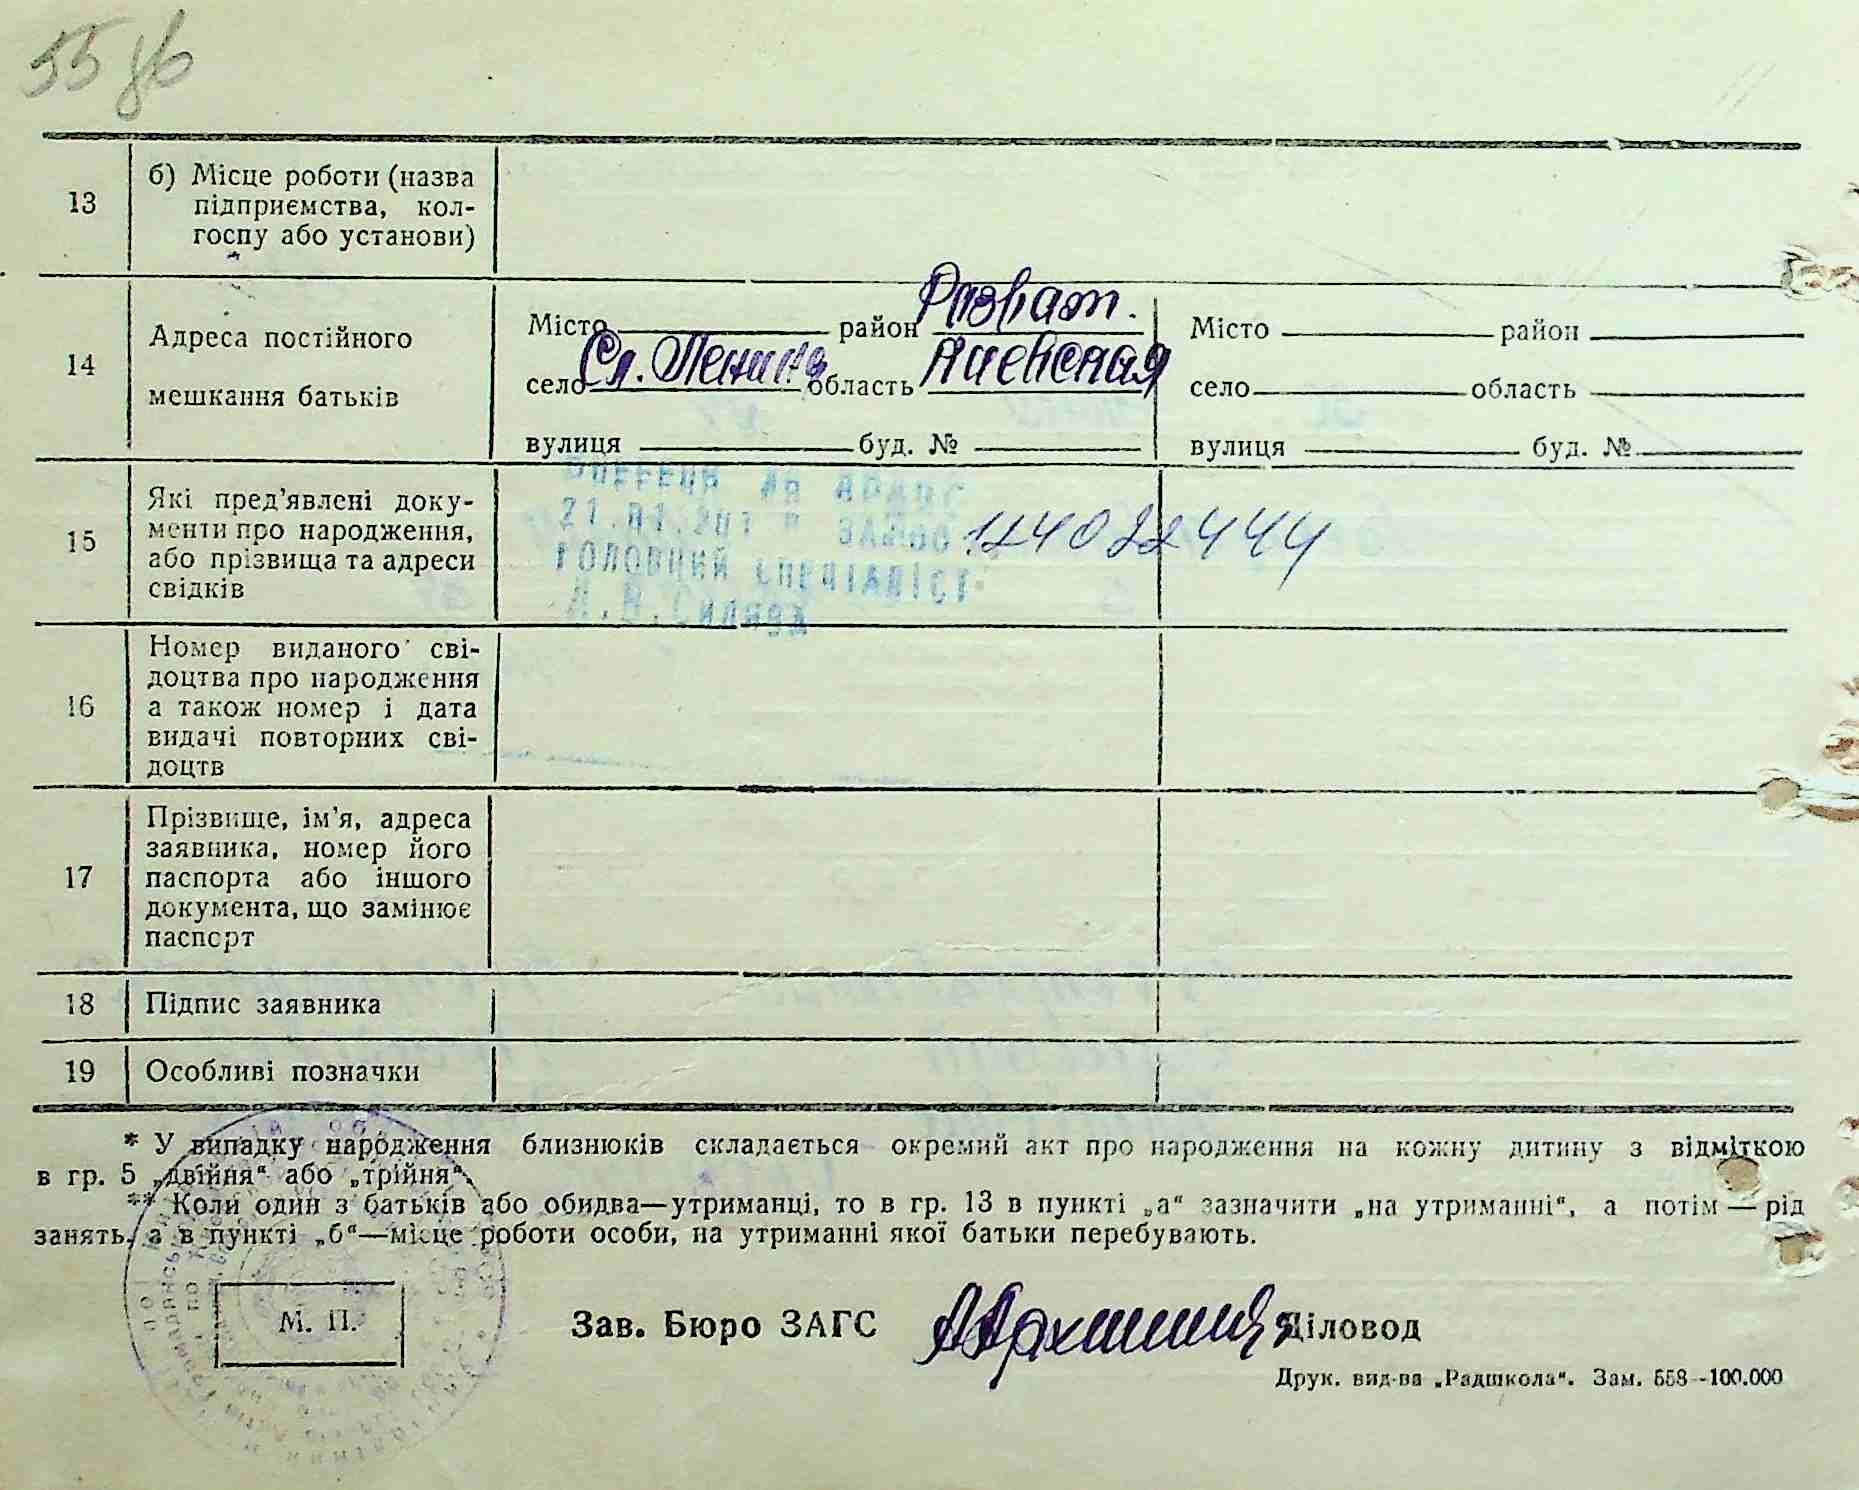 55 зв
13
б) Місце роботи (назва
підприємства, кол-
госпу або установи)
14
Адреса постійного
мешкання батьків
Місто район Розват.
село Сл. Ленина область Киевская
вулиця буд. №
Місто район
село область
вулиця буд. №
15
Які пред'явлені доку-
менти про народження,
або прізвища та адреси
свідків
ГОЛОВНИЙ СПЕЦІАЛІСТ
124022444
16
Номер виданого сві-
доцтва про народження
а також номер і дата
видачі повторних сві-
доцтв
17
Прізвище, ім'я, адреса
заявника, номер його
паспорта або іншого
документа, що замінює
паспорт
18
Підпис заявника
19
Особливі позначки
* У випадку народження близнюків складається окремий акт про народження на кожну дитину з відміткою
в гр. 5 „двійня“ або „трійня“.
** Коли один з батьків або обидва—утриманці, то в гр. 13 в пункті „а“ зазначити „на утриманні“, а потім — рід
занять, а в пункті „б“—місце роботи особи, на утриманні якої батьки перебувають.
М. П.
Зав. Бюро ЗАГС Діловод
Друк. вид-ва „Радшкола“. Зам. 558--100.000